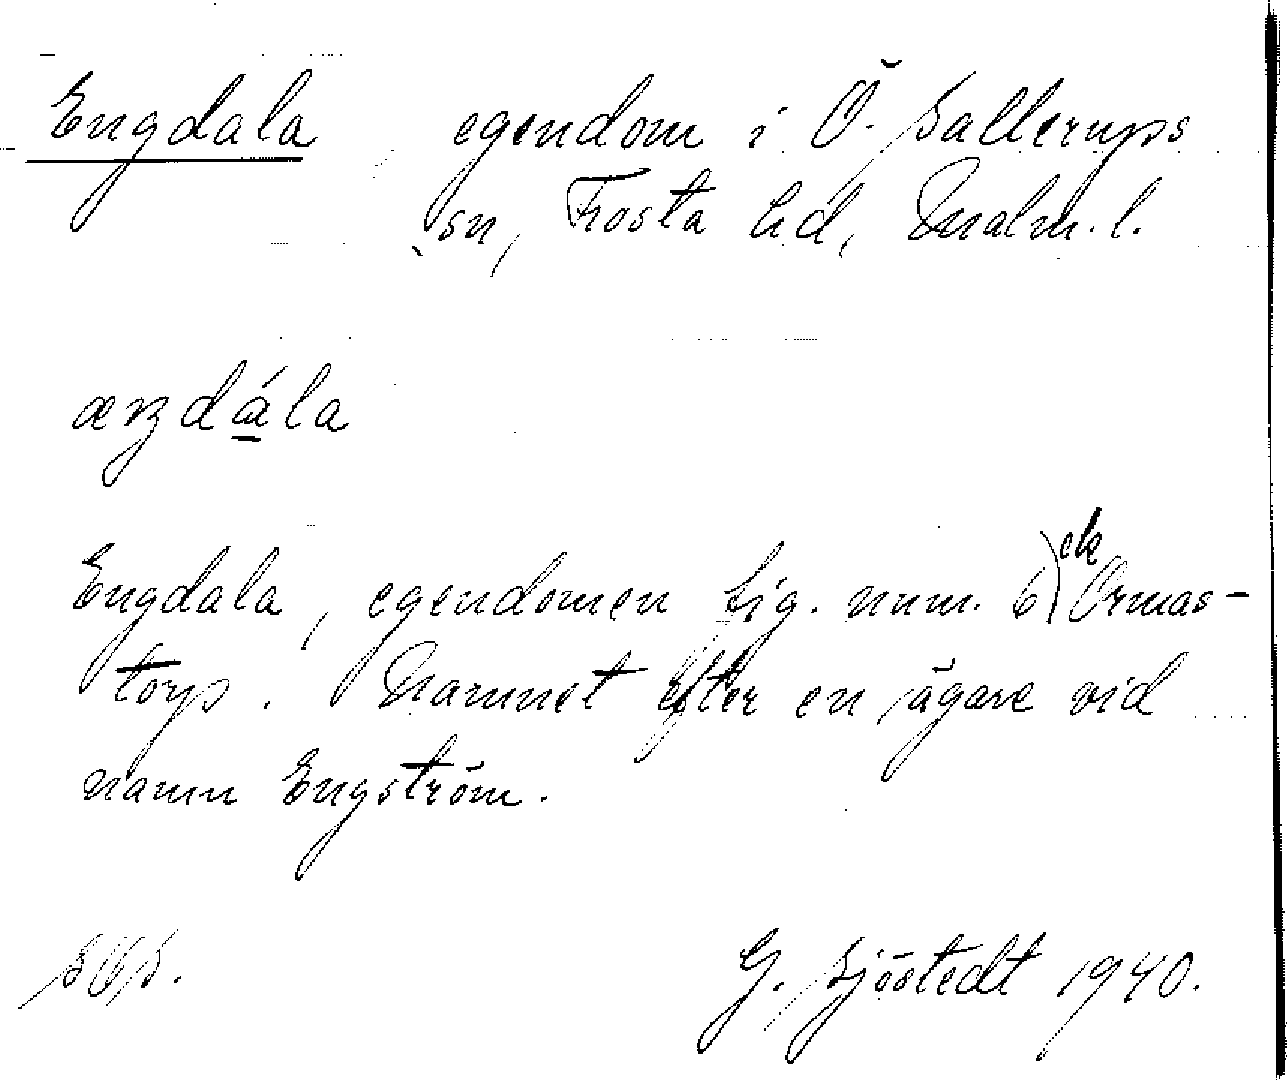 Engdala egendom i Ö. Sallerups
sn, Frosta hd, Malm. l.
æŋdála
Engdala, egendomen lig. num. 6) etc Ormas-
torp. Namnet efter en ägare vid
namn Engström.
G. Sjöstedt 1940.